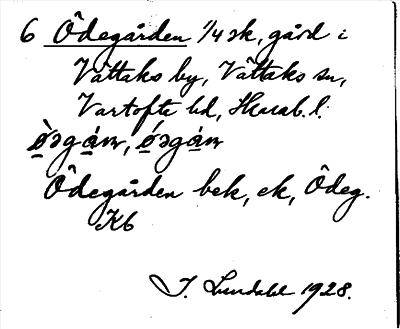 6 Ödegården 1/4 sk, gård i
Vättaks by, Vättaks sn,
Vartofta hd, Skarab. l.
Ödegården bek, ek, Ödeg.
Kb
J. Lundahl 1928.